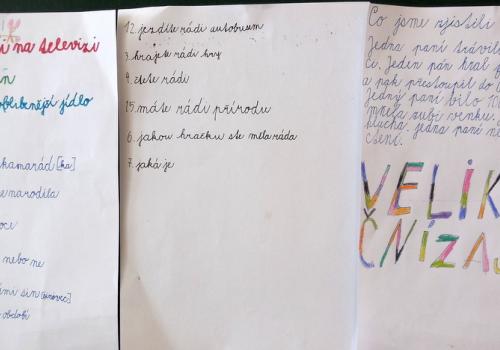 i na televizi
oblíbenější jídlo
kamarád [ka]
narodila
nebo ne
sin
období
12. jezdíte rádi autobusem
3. hrajete rádi hry
9. čtete rádi
15. máte rádi přírodu
6. jakou hračku ste měla ráda
7. jaká je
Co jsme zjistili
Jedna paní trávila
ču. Jeden pán hrál
a pak přestoupil do
Jedný paní bylo
zubí venku.
slucha. jedna paní ne
čtení.
VELIK
ČNÍ ZAJ